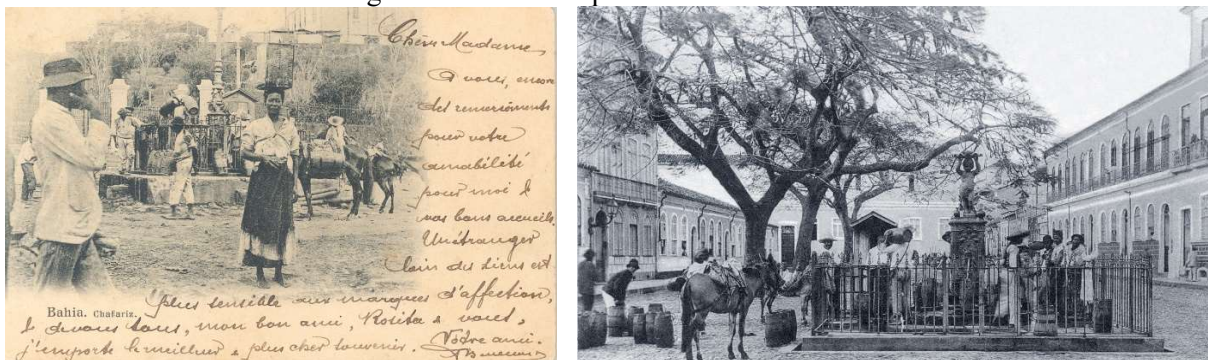 Chère Madame,
A vous, encore
des remerciements
pour votre
amabilité
pour moi &
vos bons accueils.
Un étranger
loin des siens est
plus sensible aux marques d'affection,
Bahia. Chafariz.
& de vous tous, mon bon ami, Rosita & vous,
j'emporte le meilleur & plus cher souvenir. Votre ami.